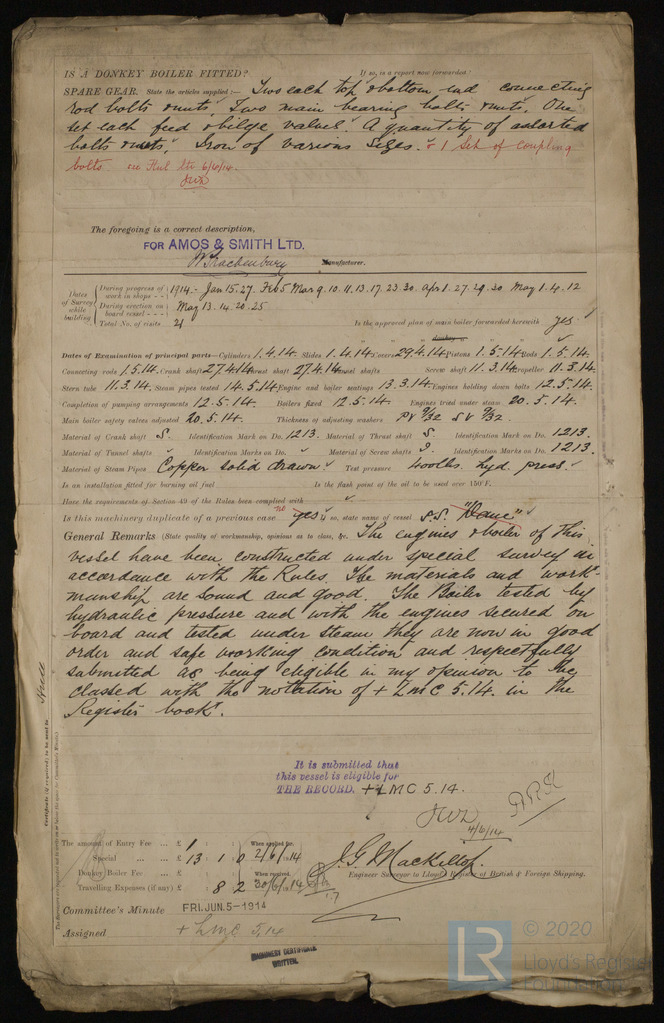 IS A DONKEY BOILER FITTED? If so, is a report now forwarded
SPARE GEAR. State the articles supplied:— Two each top & bottom end connecting
rod bolts & nuts, Two main bearing bolts & nuts, One
set each feed & bilge valves. A quantity of assorted
bolts & nuts, Iron of various sizes. & 1 Set of Coupling
bolts see Hul ltr 6/6/14.
The foregoing is a correct description,
FOR AMOS & SMITH LTD.
Manufacturer.
Dates of Survey while building
During progress of work in shops - - 1914.- Jan 15.27. Feb 5 Mar 9.10.11.13.17.23.30. Apr 1.27.29.30 May 1.4.12
During erection on board vessel - - - May 13.14.20.25
Total No. of visits 21 Is the approved plan of main boiler forwarded herewith yes
" " " donkey " " "
Dates of Examination of principal parts—Cylinders 1.4.14. Slides 1.4.14. Covers 29.4.14 Pistons 1.5.14 Rods 1.5.14.
Connecting rods 1.5.14. Crank shaft 27.4.14 Thrust shaft 27.4.14 Tunnel shafts Screw shaft 11.3.14. Propeller 11.3.14
Stern tube 11.3.14. Steam pipes tested 14.5.14 Engine and boiler seatings 13.3.14 Engines holding down bolts 12.5.14.
Completion of pumping arrangements 12.5.14. Boilers fixed 12.5.14. Engines tried under steam 20.5.14.
Main boiler safety valves adjusted 20.5.14. Thickness of adjusting washers PV 9/32 SV 9/32.
Material of Crank shaft S. Identification Mark on Do. 1213. Material of Thrust shaft S. Identification Mark on Do. 1213.
Material of Tunnel shafts Identification Marks on Do. Material of Screw shafts S. Identification Marks on Do. 1213.
Material of Steam Pipes Copper solid drawn Test pressure 400 lbs. hyd. press.
Is an installation fitted for burning oil fuel Is the flash point of the oil to be used over 150°F.
Have the requirements of Section 49 of the Rules been complied with
Is this machinery duplicate of a previous case no yes If so, state name of vessel S.S. "Dane"
General Remarks (State quality of workmanship, opinions as to class, &c. The engines & boiler of this
vessel have been constructed under special survey in
accordance with the Rules. The materials and work-
manship are sound and good. The Boiler tested by
hydraulic pressure and with the engines secured on
board and tested under steam they are now in good
order and safe working condition and respectfully
submitted as being eligible in my opinion to be
classed with the notation of + LMC 5.14. in the
Register book.
It is submitted that
this vessel is eligible for
THE RECORD. + LMC 5.14.
4/6/14
The amount of Entry Fee ... £ 1 : : When applied for,
Special ... ... £ 13 : 1 : 0 2/6/14
Donkey Boiler Fee ... ... £ : : When received,
Travelling Expenses (if any) £ : 8 : 2 30/6/14
J. G. Mackillop.
Engineer Surveyor to Lloyd's Register of British & Foreign Shipping.
Committee's Minute FRI. JUN. 5-1914
Assigned + LMC 5.14
MACHINERY CERTIFICATE
WRITTEN.
Certificate (if required) to be sent to Hull
LR
© 2020
Lloyd's Register
Foundation